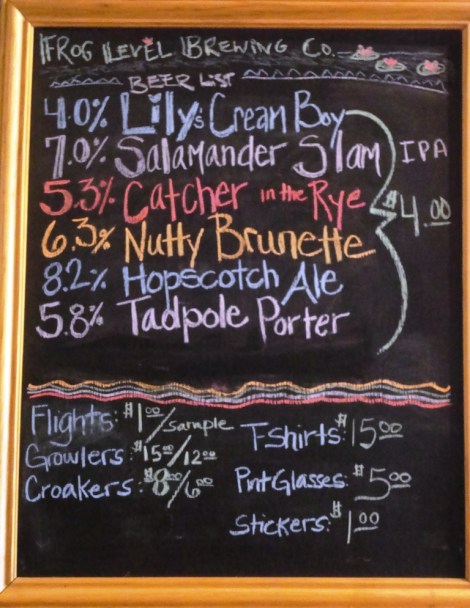 FROG LEVEL BREWING CO.
BEER LIST
4.0% Lily's Cream Boy
7.0% Salamander Slam IPA
5.3% Catcher in the Rye
$4.00
6.3% Nutty Brunette
8.2% Hopscotch Ale
5.8% Tadpole Porter
Flights: $1.00/sample
Growlers: $15.00/12.00
Croakers: $8.00/6.00
T-Shirts: $15.00
Pint Glasses: $5.00
Stickers: $1.00